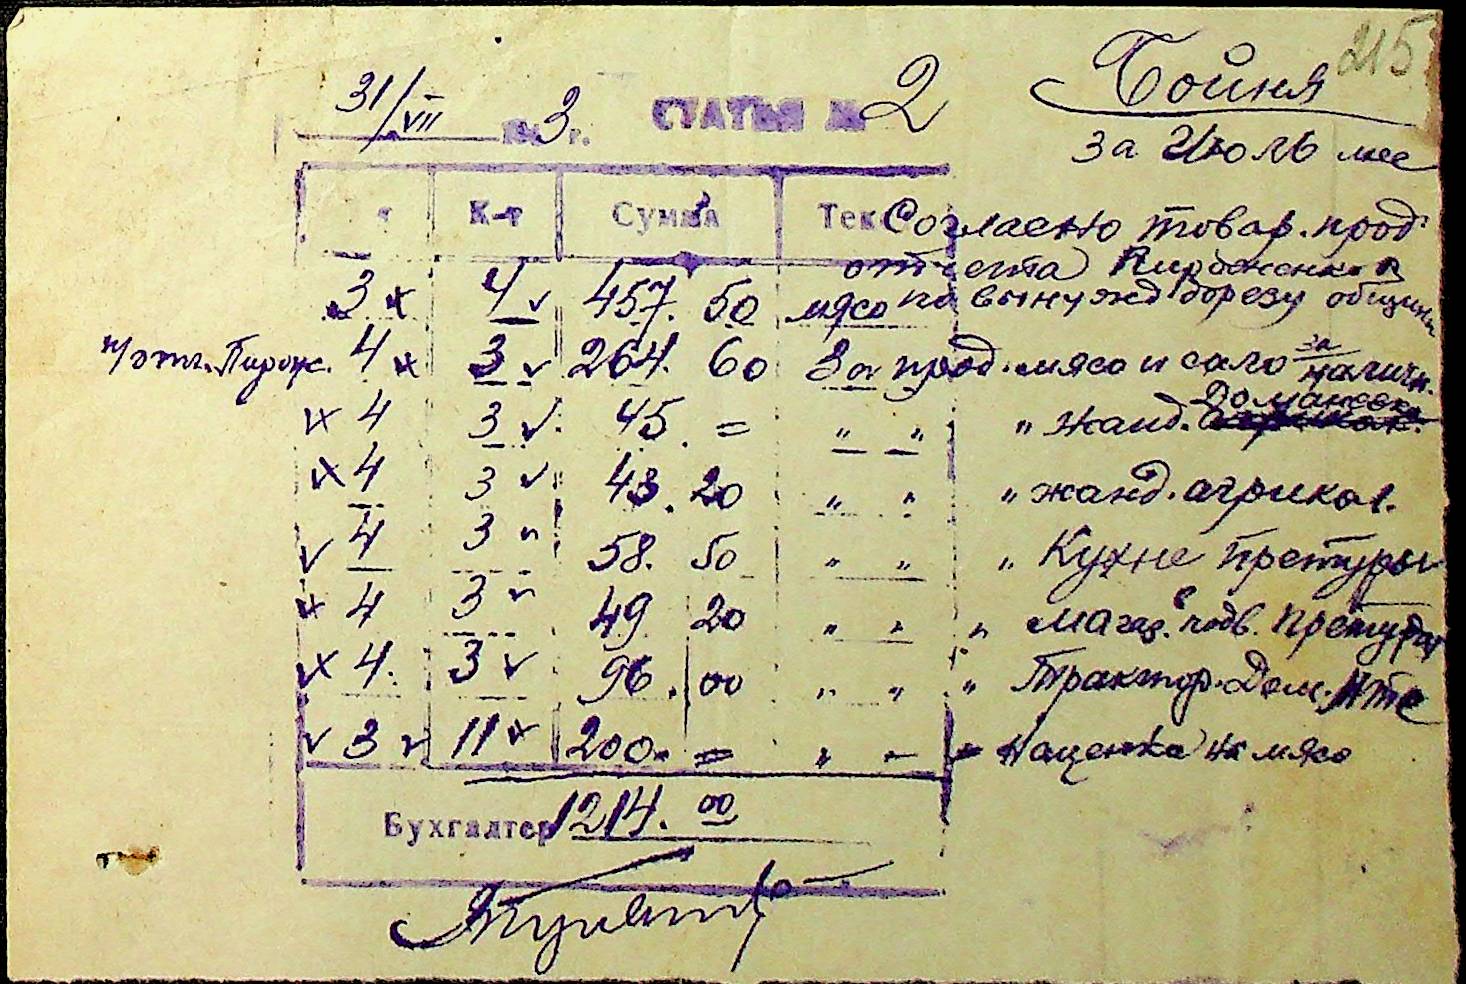 215
Бойня
31/VII 1943 г. СТАТЬЯ № 2
за Июль м-це
К-т Сумма Текс Согласно товар. прод.
отчета
3 4 457. 50 мясо по вынужд дорезу общины
п/отч. Пирож. 4 3 264. 60 За прод. мясо и сало за наличн.
4 3 45. = " " " жанд. Доманевка
4 3 43. 20 " " " жанд. агрикол.
4 3 58. 50 " " " Кухне претуры
4 3 49 20 " " " магаз. подв. претуры
4. 3 96. 00 " " " Трактор. Дом.
3 11 200. = " " " наценка на мясо
Бухгалтер 1214. 00